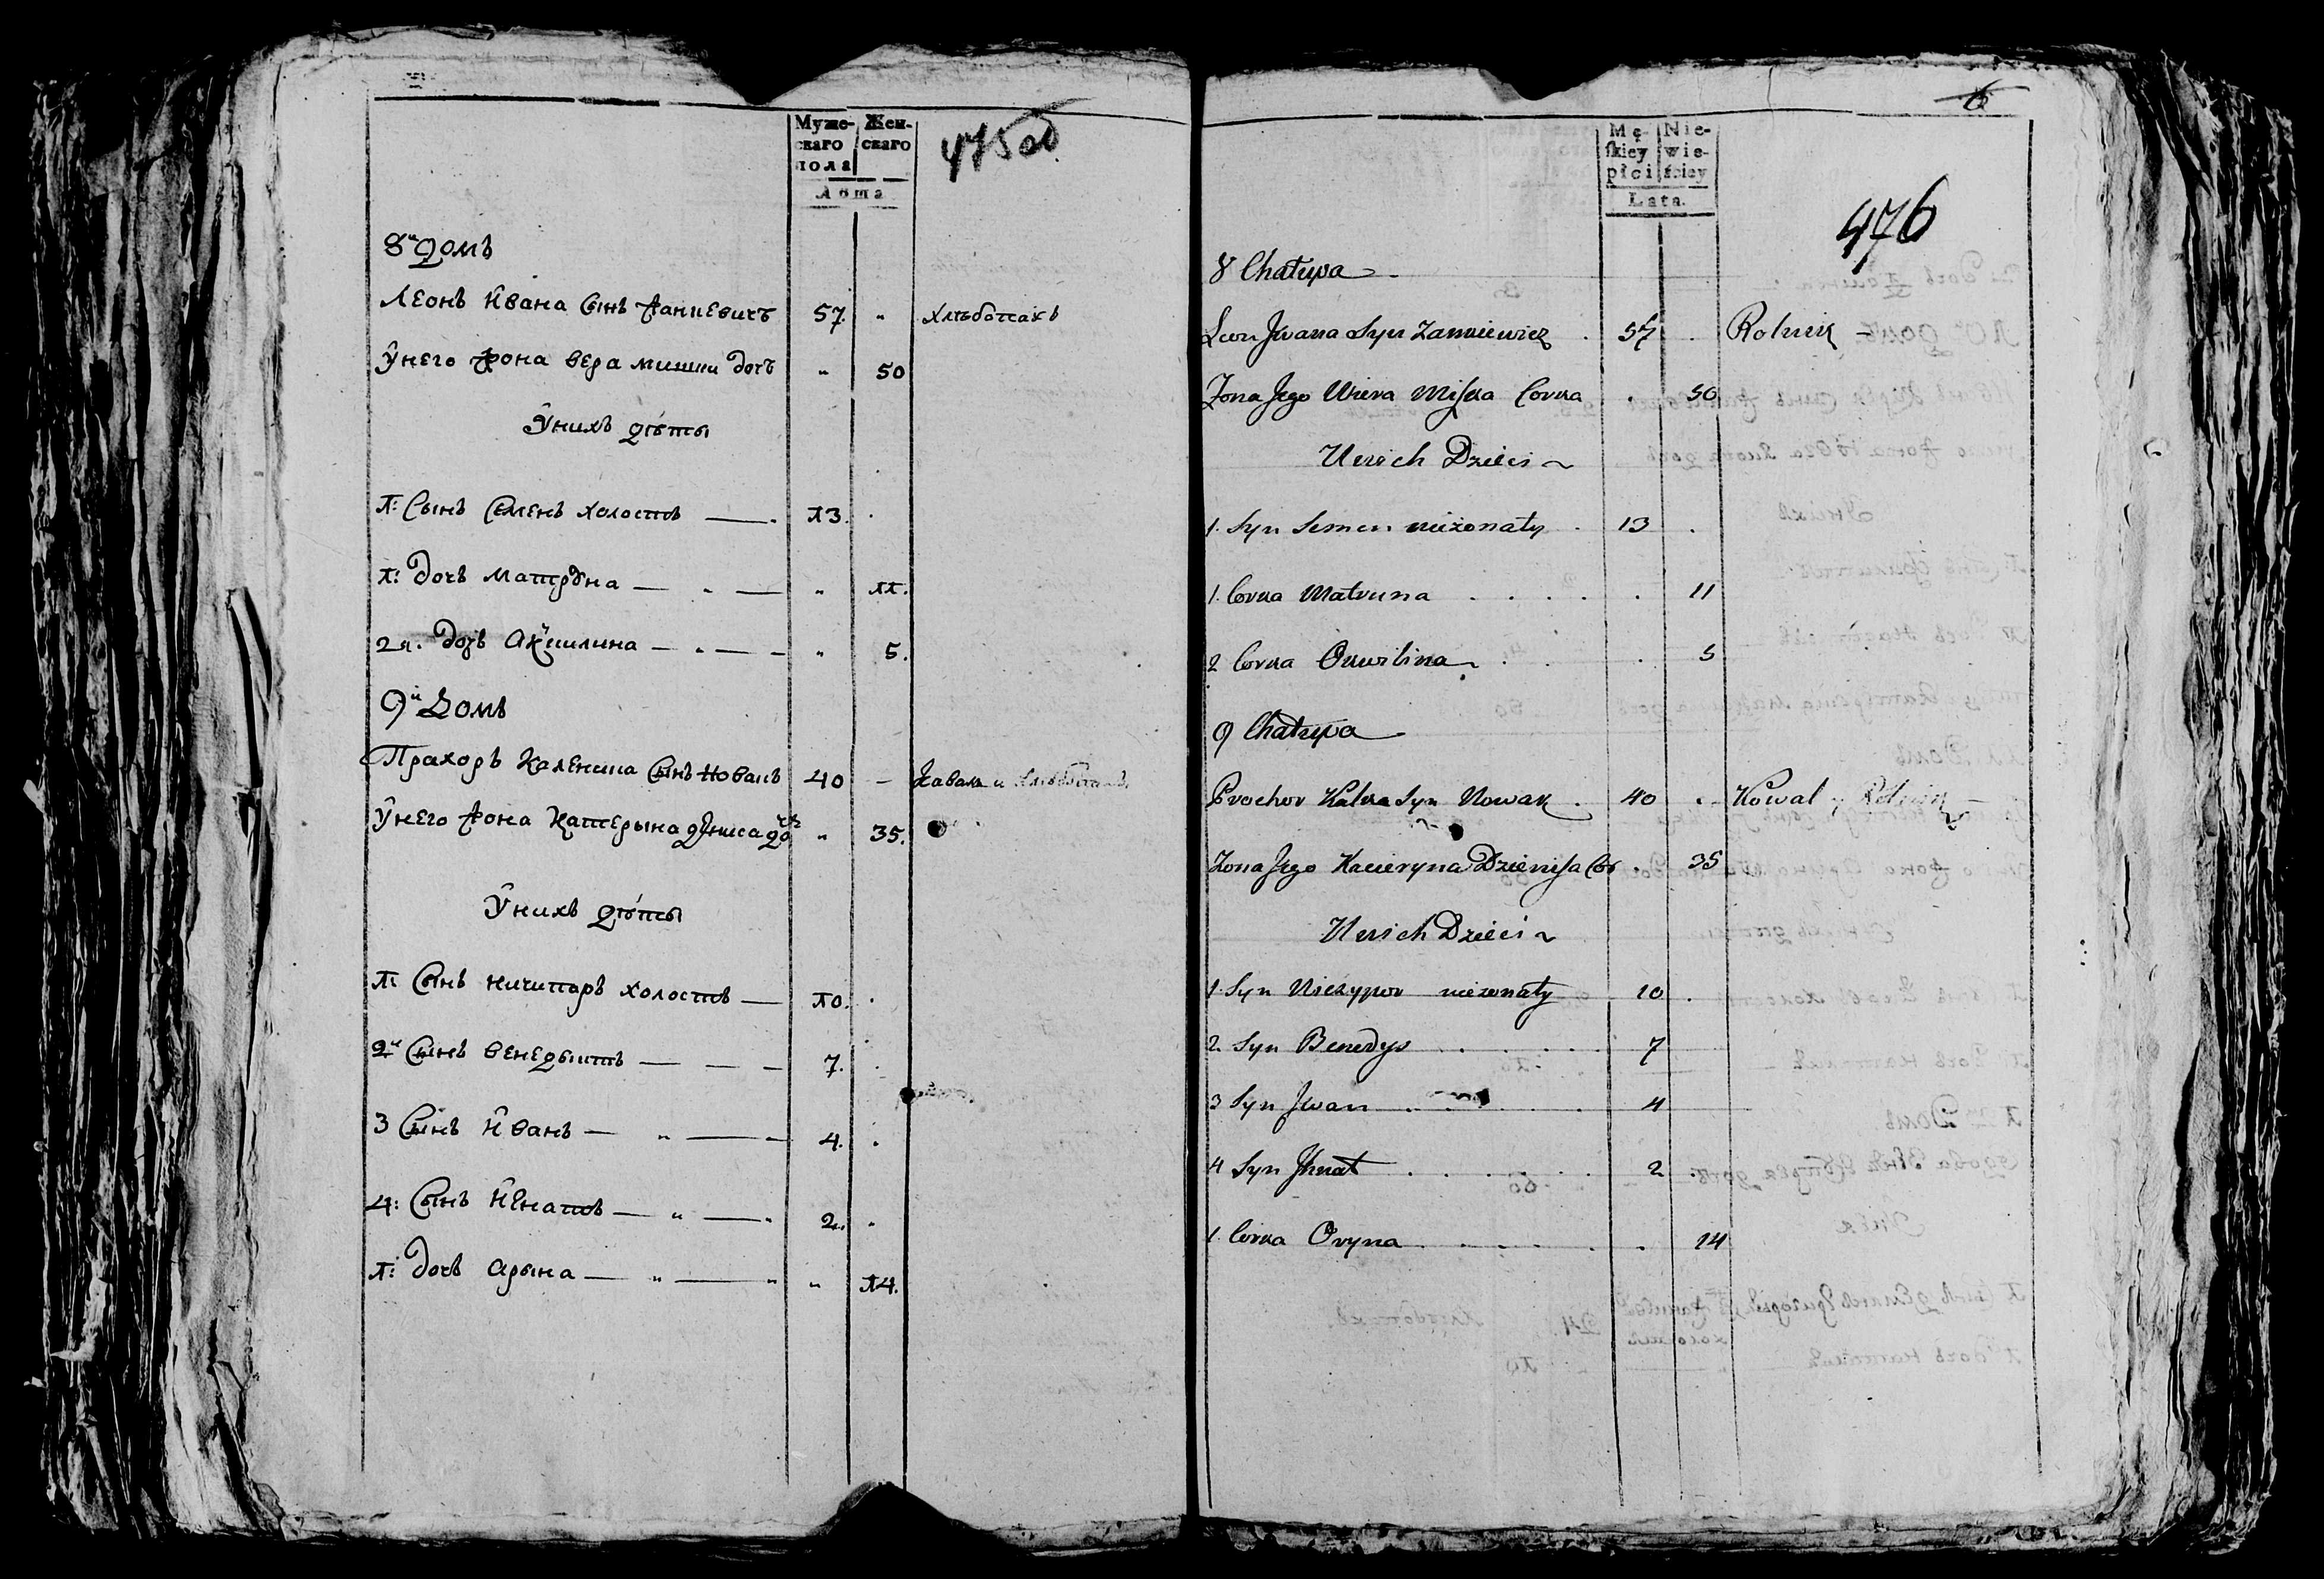 Муже-
скаго
пола
Жен-
скаго
Лѣта
475об
8й Домъ
Леонъ Ивана Сынъ Занкевичъ 57. " Хлѣбопахъ
Унего жона вера мишки дочъ " 50
Унихъ дѣты
1: Сынъ Семенъ холостъ 13.
1: Дочъ матруна " 11.
2я. Дочъ Акушлина " 5.
9й Домъ
Прахоръ Каленика Сынъ Новакъ 40 — Каваль и
Унего жона Катерына дениса доч " 35.
Унихъ дѣты
1: Сынъ ничипаръ холостъ — 10.
2й Сынъ венедыктъ 7.
3 Сынъ Иванъ — " — 4.
4: Сынъ Игнатъ — " — 2.
1: дочъ Арына — " — " 14.
6
Mę-
ſkiey
płci
Nie-
wie-
ściey
Lata.
476
8 Chatupa
Leon Jwana Syn Zanniewicz . 57 . Rolnik
Zona Jego Wiera Miſska Corka . 50
U nich Dzieci
1. Syn Semen niezonaty . 13 .
1. Corka Matruna . . . . . 11
2 Corka Okuilina . . . . 5
9 Chatupa
Prochor Kalka Syn Nowak . 40 . Kowal y Rolnik
Zona Jego Kacieryna Dzieniſa Cor . 35
U nich Dzieci
1. Syn Niczypor niezonaty 10 .
2. Syn Benedyo . . . . 7
3 Syn Jwan . . . . 4
4 Syn Jhnat . . . . 2 .
1. Corka Oryna . . . . . 14